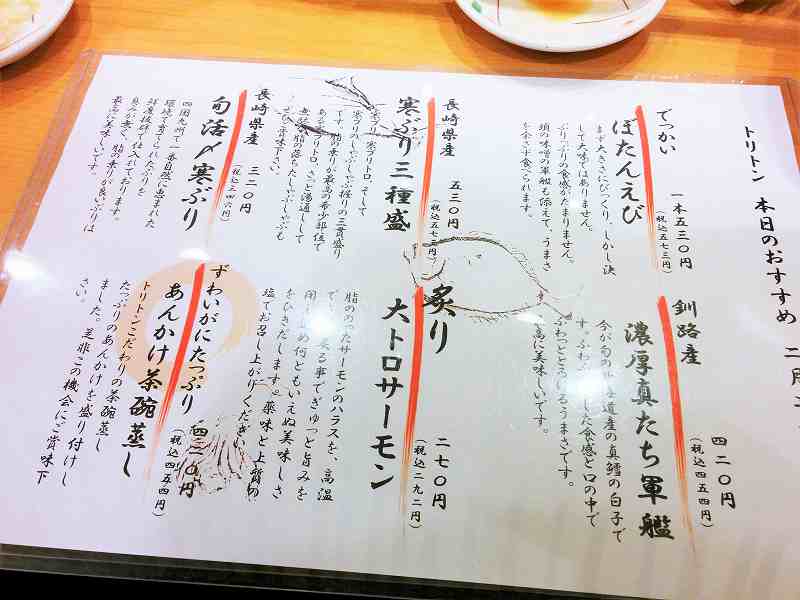 トリトン 本日のおすすめ 二月二
でっかい
ぼたんえび
一本五三〇円
(税込五七三円)
ます大きさにびっくり、しかし決
して大味ではありません。
ぷりっぷりの食感がたまりません。
頭の味噌の軍艦も添えて、うまさ
を余さず食べられます。
釧路産
濃厚真たち軍艦
四二〇円
(税込四五四円)
今が旬の 海道産の真鱈の白子で
す。ふわふ した食感と口の中で
ふわっととろけるうまさです。
高に美味しいです。
長崎県産
寒ぶり三種盛
五三〇円
(税込五七三円)
寒ブリ、寒ブリトロ、そして
寒ブリのしゃぶしゃぶ握りの三貫盛り
です。脂の乗りが最高の希少部位で
あるブリトロ、さっと湯通しして
余分な脂の落ちたしゃぶしゃぶも
ぜひご賞味下さい。
炙り
大トロサーモン
二七〇円
(税込二九二円)
脂ののったサーモンのハラスを、高温
で 炙る事でぎゅっと旨みを
閉じ込め何ともいえぬ美味しさ
をひきだします。薬味と上質の
塩でお召し上がりください。
長崎県産
旬活〆寒ぶり
三二〇円
(税込三四六円)
四国九州で一番自然に恵まれた
環境で育てられたぶりを
鮮度抜群で仕入れております。
臭みが無く、脂の乗りが良いぶりは
最高に美味しいです。
ずわいがにたっぷり
あんかけ茶碗蒸し
四二〇円
(税込四五四円)
トリトンこだわりの茶碗蒸し
たっぷりのあんかけを盛り付けし
ました。是非この機会にご賞味下
さい。